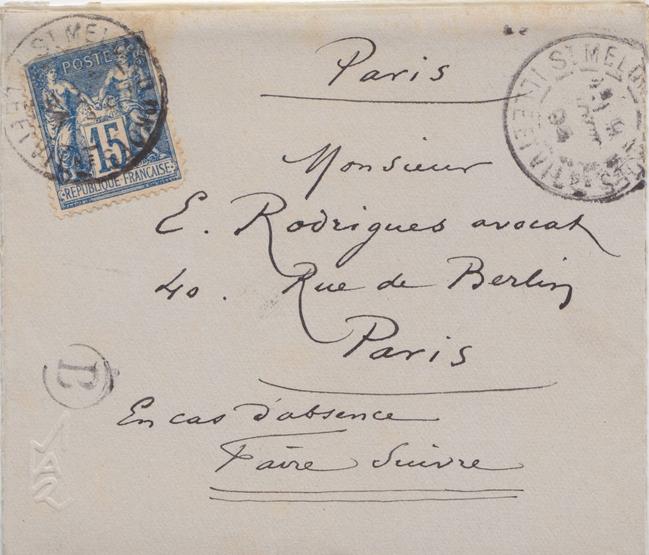 Paris
POSTES
15
REPUBLIQUE FRANÇAISE
Monsieur
E. Rodrigues avocat
40. Rue de Berlin
Paris
En cas d'absence
Faire Suivre
ST MELO
94